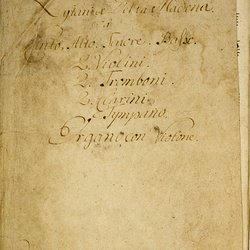 Lytaniae Della Madona
à
Canto, Alto, Tenore, Basso.
2. Violini.
2. Tromboni.
2. Clarini.
Tympano.
Organo con Violone.